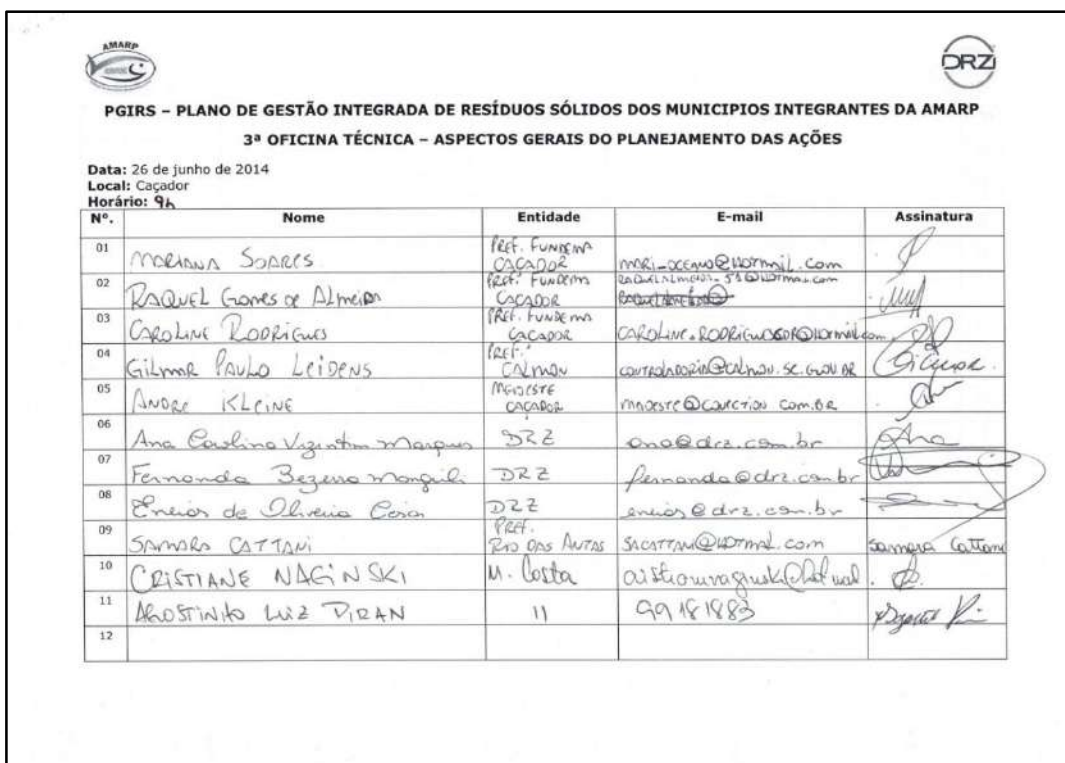 AMARP
DRZ
PGIRS – PLANO DE GESTÃO INTEGRADA DE RESÍDUOS SÓLIDOS DOS MUNICIPIOS INTEGRANTES DA AMARP
3ª OFICINA TÉCNICA – ASPECTOS GERAIS DO PLANEJAMENTO DAS AÇÕES
Data: 26 de junho de 2014
Local: Caçador
Horário: 9h
Nº. Nome Entidade E-mail Assinatura
01 MARIANA SOARES PREF. FUNDEMA CAÇADOR mari-oceano@hotmail.com
02 RAQUEL Gomes de ALmeida PREF. FUNDEMA CAÇADOR
03 CAROLINE RODRIGUES PREF. FUNDEMA CAÇADOR
04 GiLmAR PAULO LeiDENS PREF. CALMON CONTROLADORIA@CALMON.SC.GOV.BR Gilmar
05 ANDRE KLEINE MEIOESTE CAÇADOR
06 Ana Carolina Vizintim Marques DRZ ana@drz.com.br Ana
07 Fernanda Bezerra DRZ fernanda@drz.com.br
08 Eneias de Oliveira Cesar DRZ eneias@drz.com.br
09 SAMARA CATTANI PREF. RIO DAS ANTAS SACATTANI@HOTMAIL.COM Samara Cattani
10 CRISTIANE NAGINSKI M. Costa
11 AGOSTINHO LUIZ PIRAN 11 99181883
12